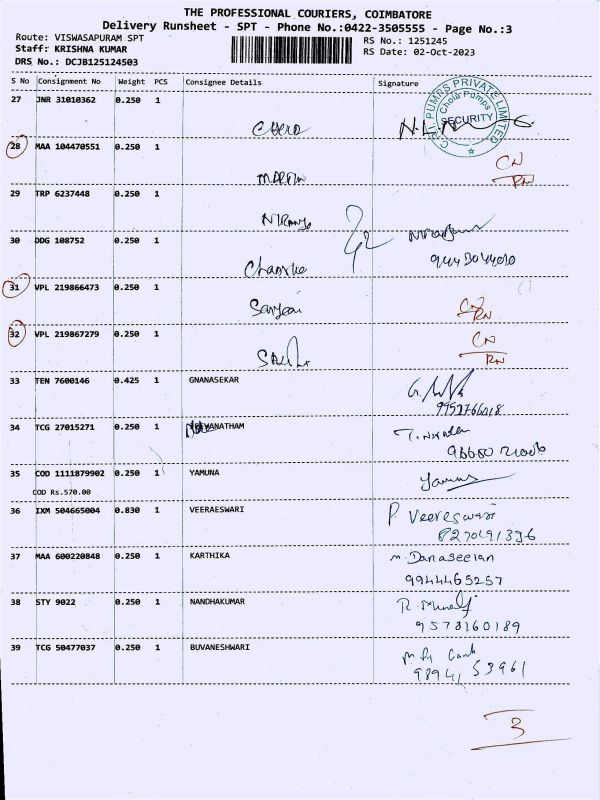 THE PROFESSIONAL COURIERS, COIMBATORE
Delivery Runsheet - SPT - Phone No.:0422-3505555 - Page No.:3
Route: VISWASAPURAM SPT
RS No.: 1251245
Staff: KRISHNA KUMAR
RS Date: 02-Oct-2023
DRS No.: DCJB125124503
S No Consignment No Weight PCS Consignee Details Signature
27 JNR 31010362 0.250 1
PUMPS PRIVATE LIMITED
Chola Pumps
SECURITY
28 MAA 104470551 0.250 1
CN
RN
29 TRP 6237448 0.250 1
30 DDG 108752 0.250 1
31 VPL 219866473 0.250 1
Sanjai
CN
RN
32 VPL 219867279 0.250 1
CN
RN
33 TEN 7600146 0.425 1 GNANASEKAR
34 TCG 27015271 0.250 1
35 COD 1111879902 0.250 1 YAMUNA
COD Rs.570.00
36 IXM 504665004 0.830 1 VEERAESWARI
P. Veereswari
37 MAA 600220848 0.250 1 KARTHIKA
9944465257
38 STY 9022 0.250 1 NANDHAKUMAR
9578160189
39 TCG 50477037 0.250 1 BUVANESHWARI
98941 53961
3